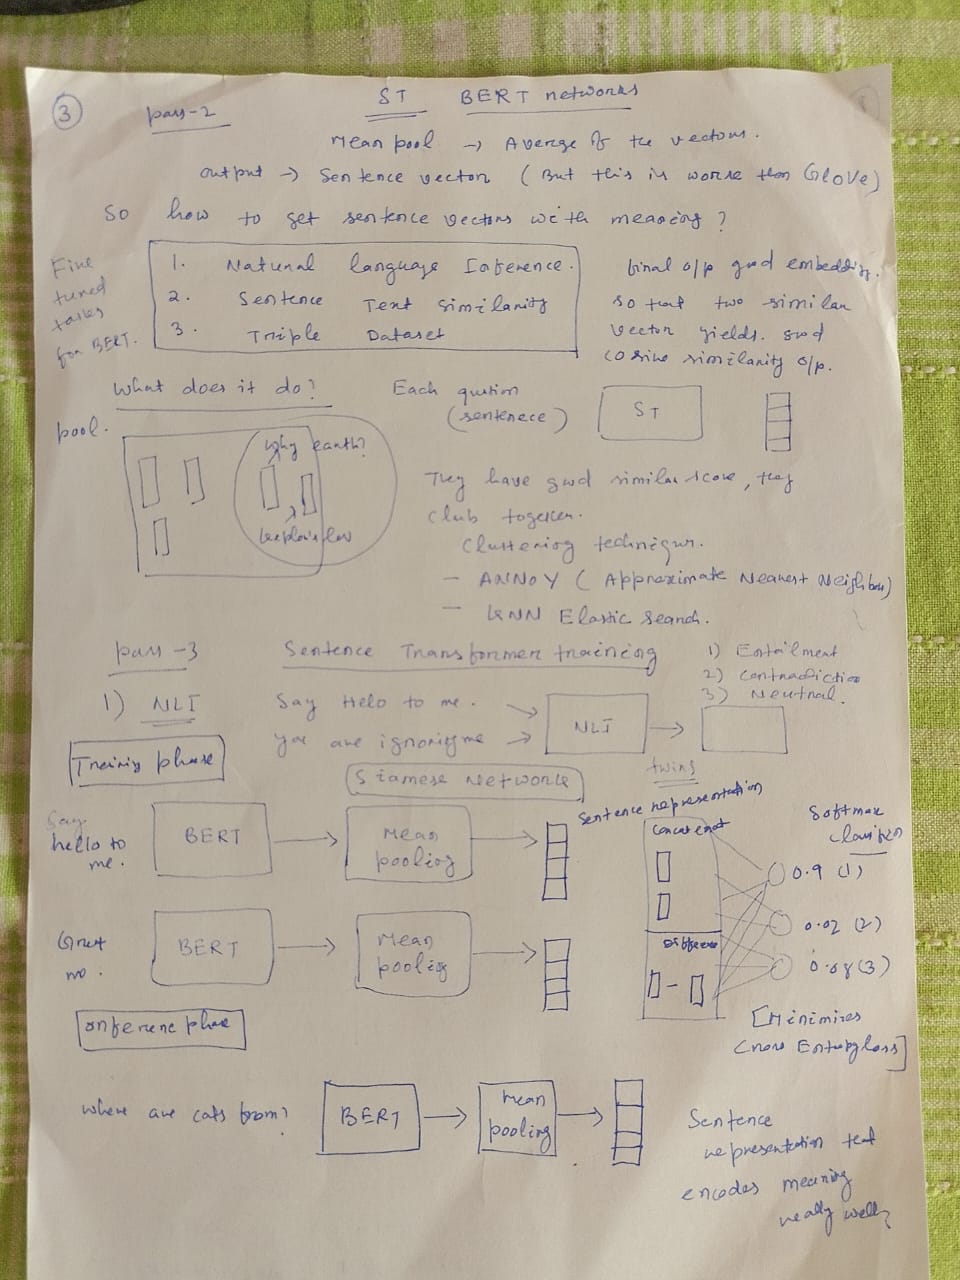 3
pass-2
ST BERT networks
Mean pool → Average of the vectors.
output → Sentence vector (But this is worse than GloVe)
So how to get sentence vectors with meaning?
Fine
tuned
tasks
for BERT.
1. Natural language Inference.
2. Sentence Text similarity
3. Triple Dataset
final o/p good embedding.
so that two similar
vector yields good
cosine similarity o/p.
What does it do?
pool.
Why earth?
kepler's law
Each qustion
(sentenece)
ST
They have good similar score, they
club together.
Clustering technique.
- ANNOY (Approximate Nearest Neighbor)
- KNN Elastic search.
pass-3
Sentence Transformer training
1) Entailment
2) contradiction
3) Neutral.
1) NLI
Say Hello to me.
you are ignoring me
NLI
Training phase
Siamese Network
twins
Say
hello to
me.
BERT
Mean
pooling
Sentence representation
Concatenat
Softmax
0.9 (1)
BERT
Mean
pooling
Difference
0.02 (2)
0.08 (3)
[Minimizes
cross Entropy loss]
Where are cats from?
BERT
Mean
pooling
Sentence
representation that
encodes meaning
really well